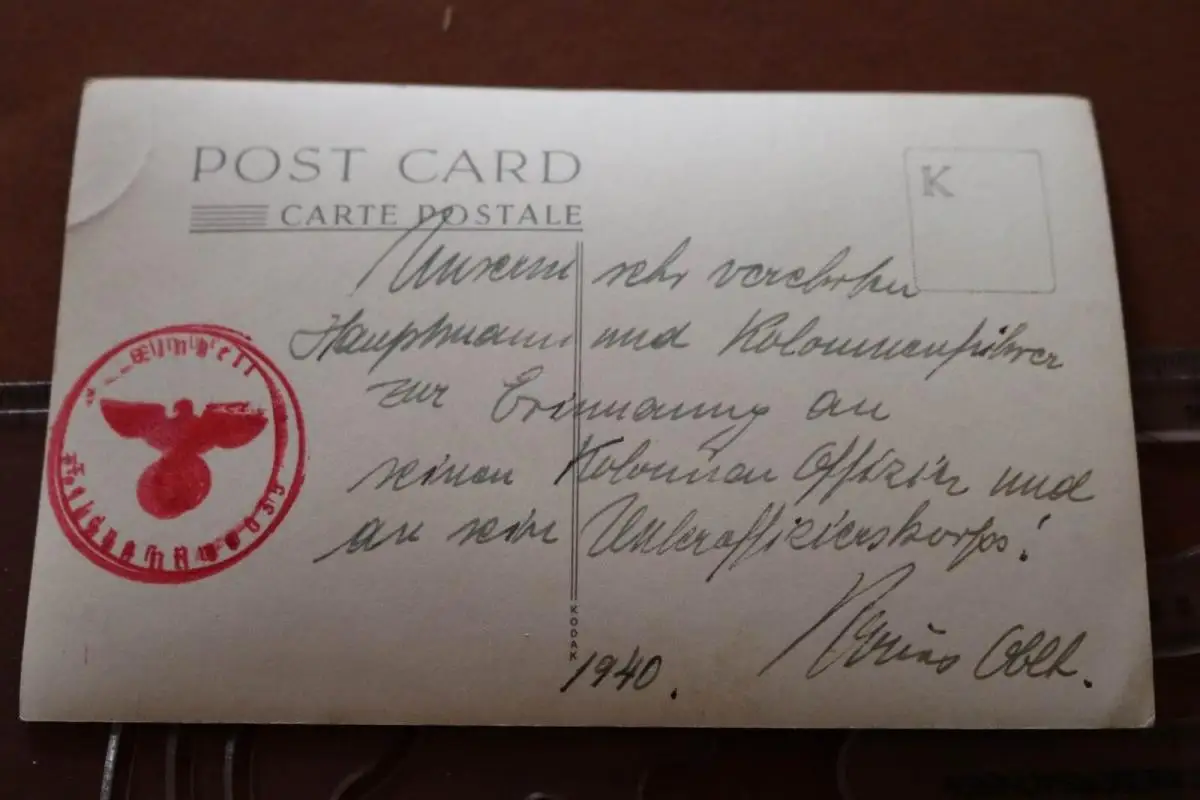 POST CARD
CARTE POSTALE
K
Unserm sehr verehrten
Hauptmann und Kolonnenführer
zur Erinnerung an
seinen Kolonnen Offizier und
an sein Unteroffizierskorps!
Oblt.
1940.
KODAK